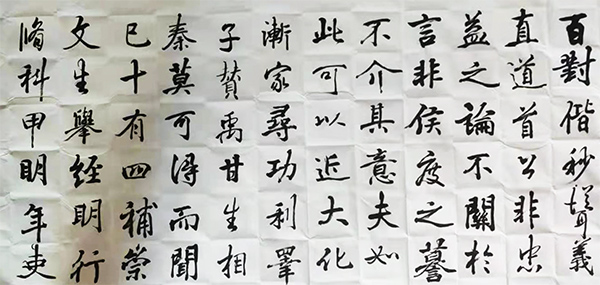 百對偕秒聳義
直道首公非忠
益之論不關於
言非侯度之謩
不介其意夫如
此可以近大化
漸家尋功利睪
子贊禹甘生相
秦莫可得而聞
已十有四補崇
文生舉經明行
脩科甲明年吏